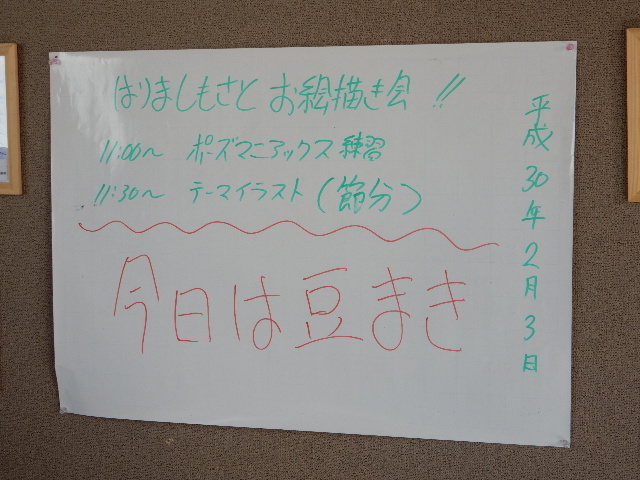 はりましもさと お絵描き会 !!
11:00～ ポーズマニアックス練習
11:30～ テーマイラスト(節分)
今日は豆まき
平成30年2月3日